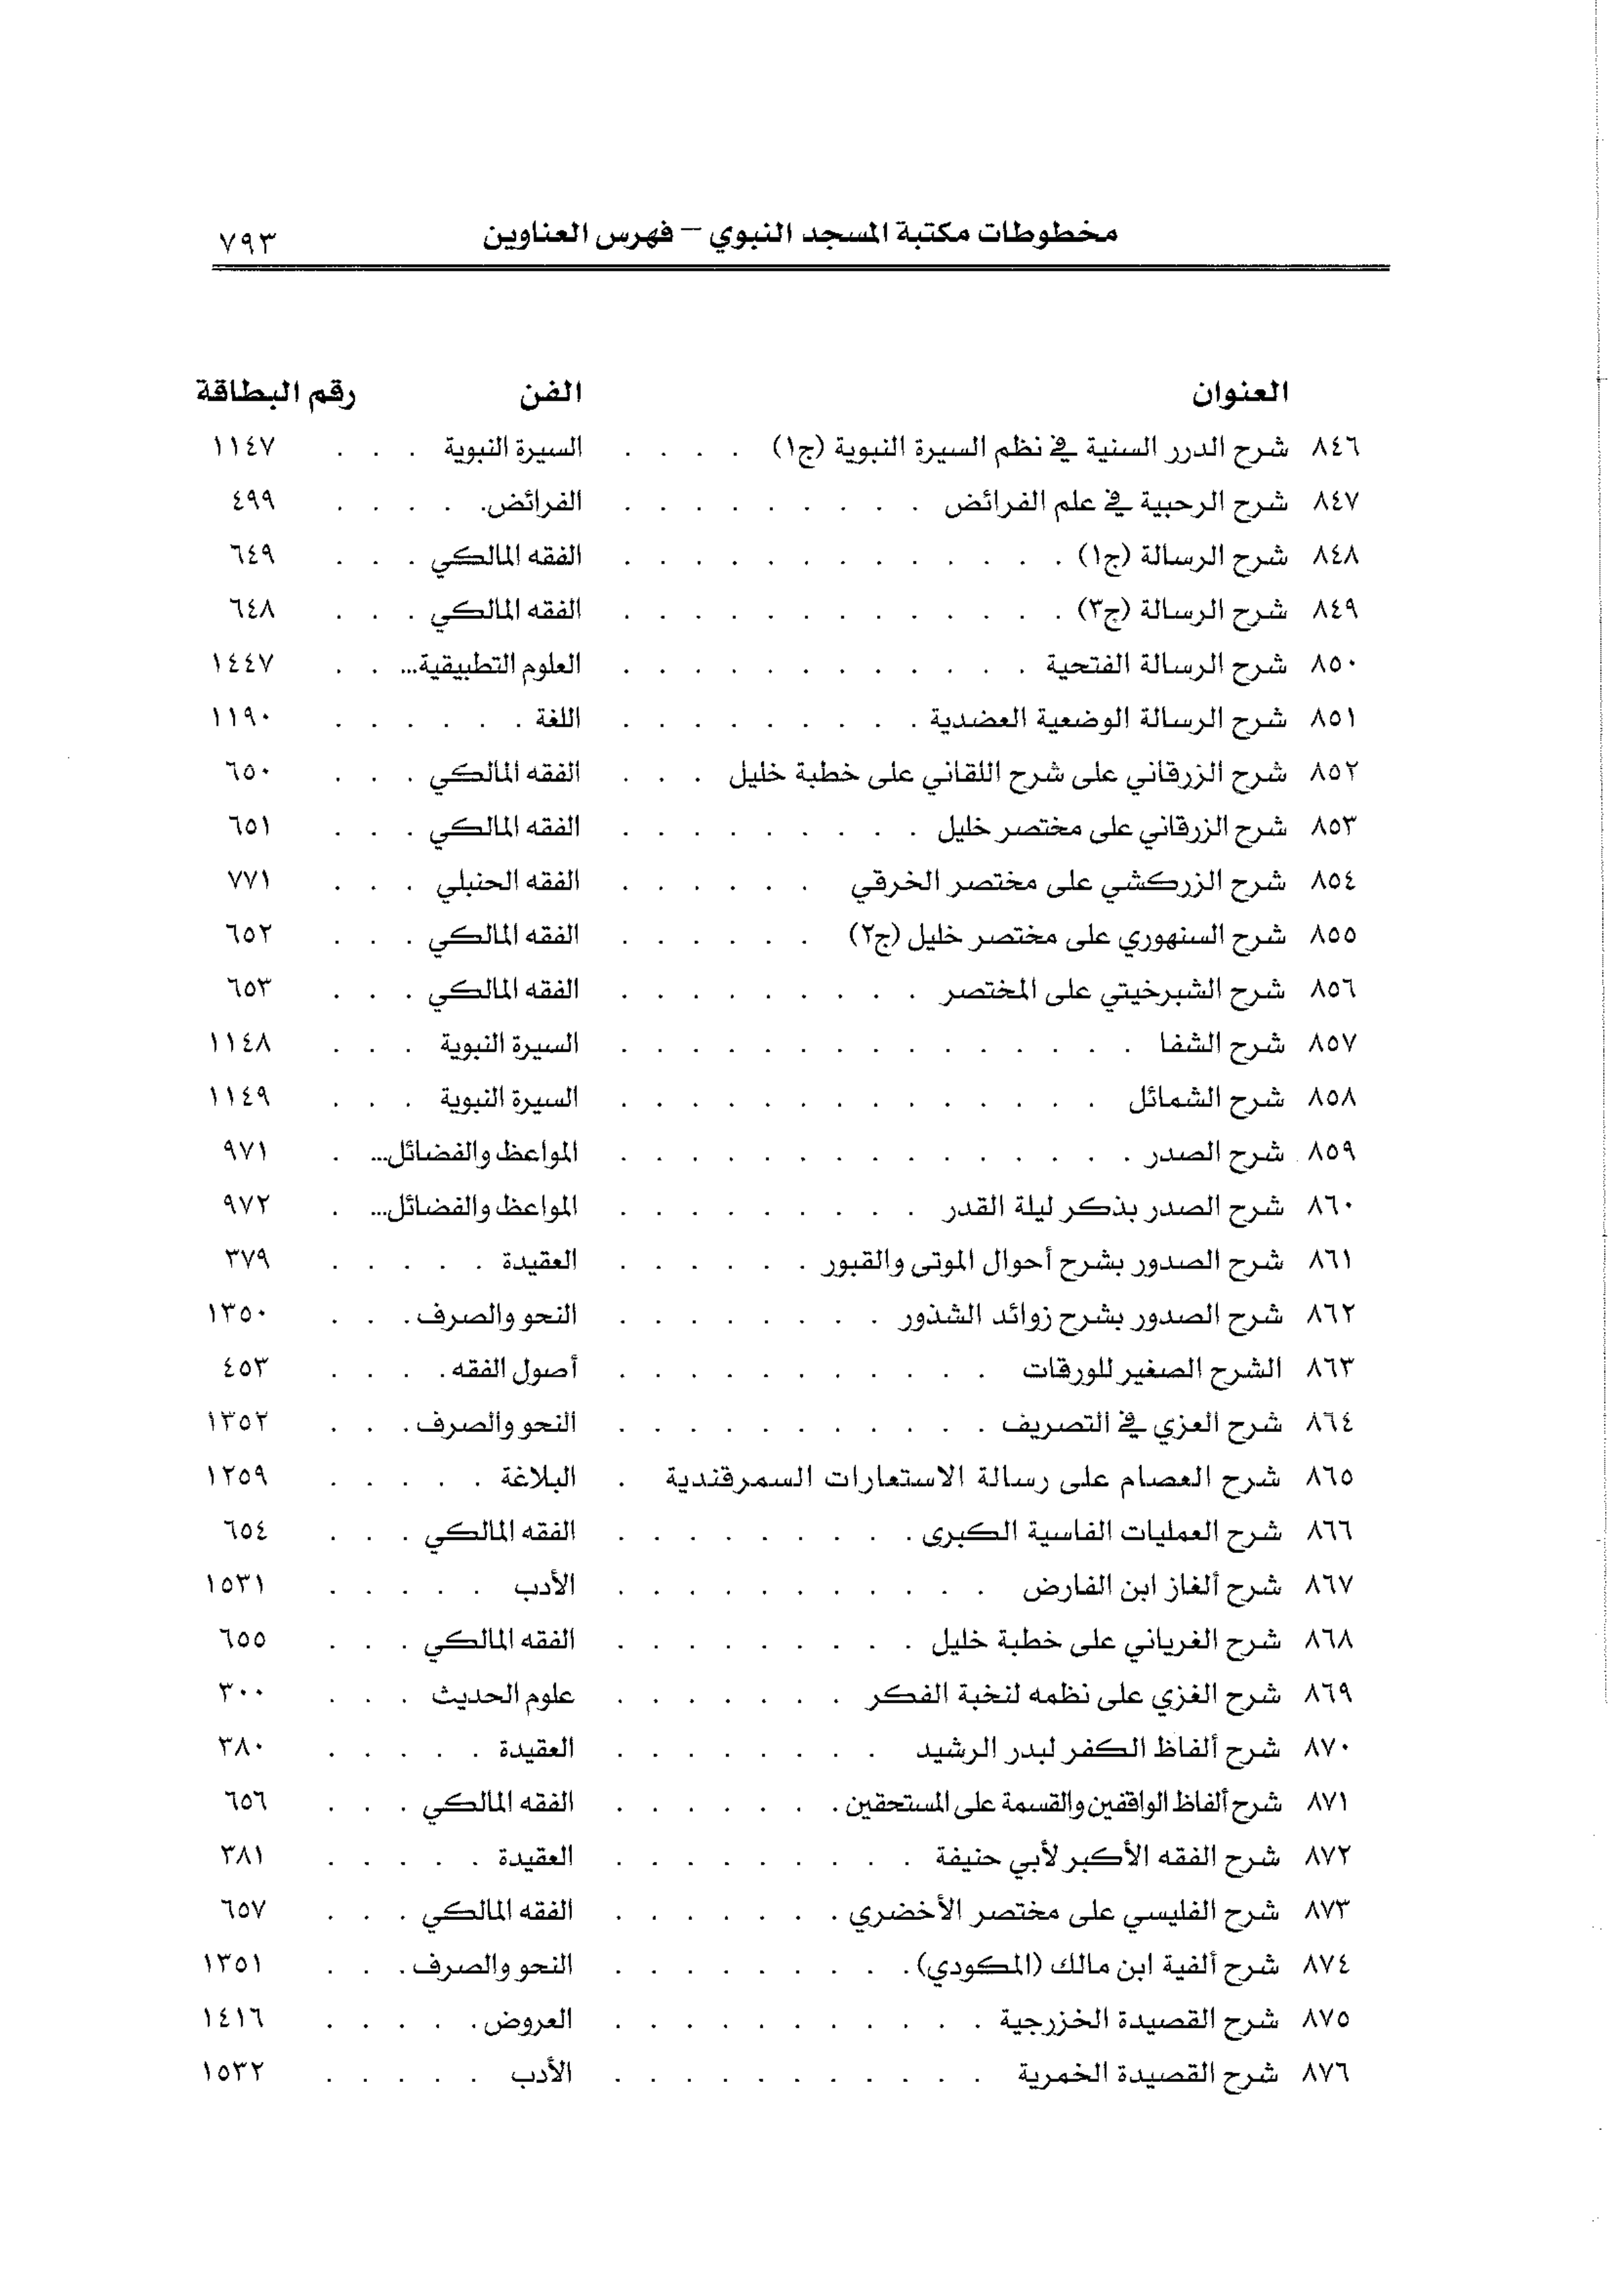 مخطوطات مكتبة المسجد النبوي – فهرس العناوين ٧٩٣
العنوان الفن رقم البطاقة
٨٤٦ شرح الدرر السنية في نظم السيرة النبوية (ج١) . . . . السيرة النبوية . . . ١١٤٧
٨٤٧ شرح الرحبية في علم الفرائض . . . . . . . . . الفرائض. . . . . ٤٩٩
٨٤٨ شرح الرسالة (ج١) . . . . . . . . . . . . . الفقه المالكي . . . ٦٤٩
٨٤٩ شرح الرسالة (ج٣) . . . . . . . . . . . . . الفقه المالكي . . . ٦٤٨
٨٥٠ شرح الرسالة الفتحية . . . . . . . . . . . . العلوم التطبيقية... . . ١٤٤٧
٨٥١ شرح الرسالة الوضعية العضدية . . . . . . . . . اللغة . . . . . . ١١٩٠
٨٥٢ شرح الزرقاني على شرح اللقاني على خطبة خليل . . . الفقه المالكي . . . ٦٥٠
٨٥٣ شرح الزرقاني على مختصر خليل . . . . . . . . . الفقه المالكي . . . ٦٥١
٨٥٤ شرح الزركشي على مختصر الخرقي . . . . . . الفقه الحنبلي . . . ٧٧١
٨٥٥ شرح السنهوري على مختصر خليل (ج٢) . . . . . . الفقه المالكي . . . ٦٥٢
٨٥٦ شرح الشبرخيتي على المختصر . . . . . . . . . الفقه المالكي . . . ٦٥٣
٨٥٧ شرح الشفا . . . . . . . . . . . . . . . السيرة النبوية . . . ١١٤٨
٨٥٨ شرح الشمائل . . . . . . . . . . . . . . السيرة النبوية . . . ١١٤٩
٨٥٩ شرح الصدر . . . . . . . . . . . . . . . المواعظ والفضائل... . ٩٧١
٨٦٠ شرح الصدر بذكر ليلة القدر . . . . . . . . . المواعظ والفضائل... . ٩٧٢
٨٦١ شرح الصدور بشرح أحوال الموتى والقبور . . . . . . العقيدة . . . . . ٣٧٩
٨٦٢ شرح الصدور بشرح زوائد الشذور . . . . . . . . النحو والصرف . . . ١٣٥٠
٨٦٣ الشرح الصغير للورقات . . . . . . . . . . . أصول الفقه . . . . ٤٥٣
٨٦٤ شرح العزي في التصريف . . . . . . . . . . . النحو والصرف . . . ١٣٥٢
٨٦٥ شرح العصام على رسالة الاستعارات السمرقندية . البلاغة . . . . . ١٢٥٩
٨٦٦ شرح العمليات الفاسية الكبرى . . . . . . . . . الفقه المالكي . . . ٦٥٤
٨٦٧ شرح ألغاز ابن الفارض . . . . . . . . . . . الأدب . . . . . ١٥٣١
٨٦٨ شرح الغرياني على خطبة خليل . . . . . . . . . الفقه المالكي . . . ٦٥٥
٨٦٩ شرح الغزي على نظمه لنخبة الفكر . . . . . . . علوم الحديث . . . ٣٠٠
٨٧٠ شرح ألفاظ الكفر لبدر الرشيد . . . . . . . . العقيدة . . . . . ٣٨٠
٨٧١ شرح ألفاظ الواقفين والقسمة على المستحقين . . . . . . . الفقه المالكي . . . ٦٥٦
٨٧٢ شرح الفقه الأكبر لأبي حنيفة . . . . . . . . . العقيدة . . . . . ٣٨١
٨٧٣ شرح الفليسي على مختصر الأخضري . . . . . . . الفقه المالكي . . . ٦٥٧
٨٧٤ شرح ألفية ابن مالك (المكودي) . . . . . . . . . النحو والصرف . . . ١٣٥١
٨٧٥ شرح القصيدة الخزرجية . . . . . . . . . . . العروض . . . . . ١٤١٦
٨٧٦ شرح القصيدة الخمرية . . . . . . . . . . . الأدب . . . . . ١٥٣٢